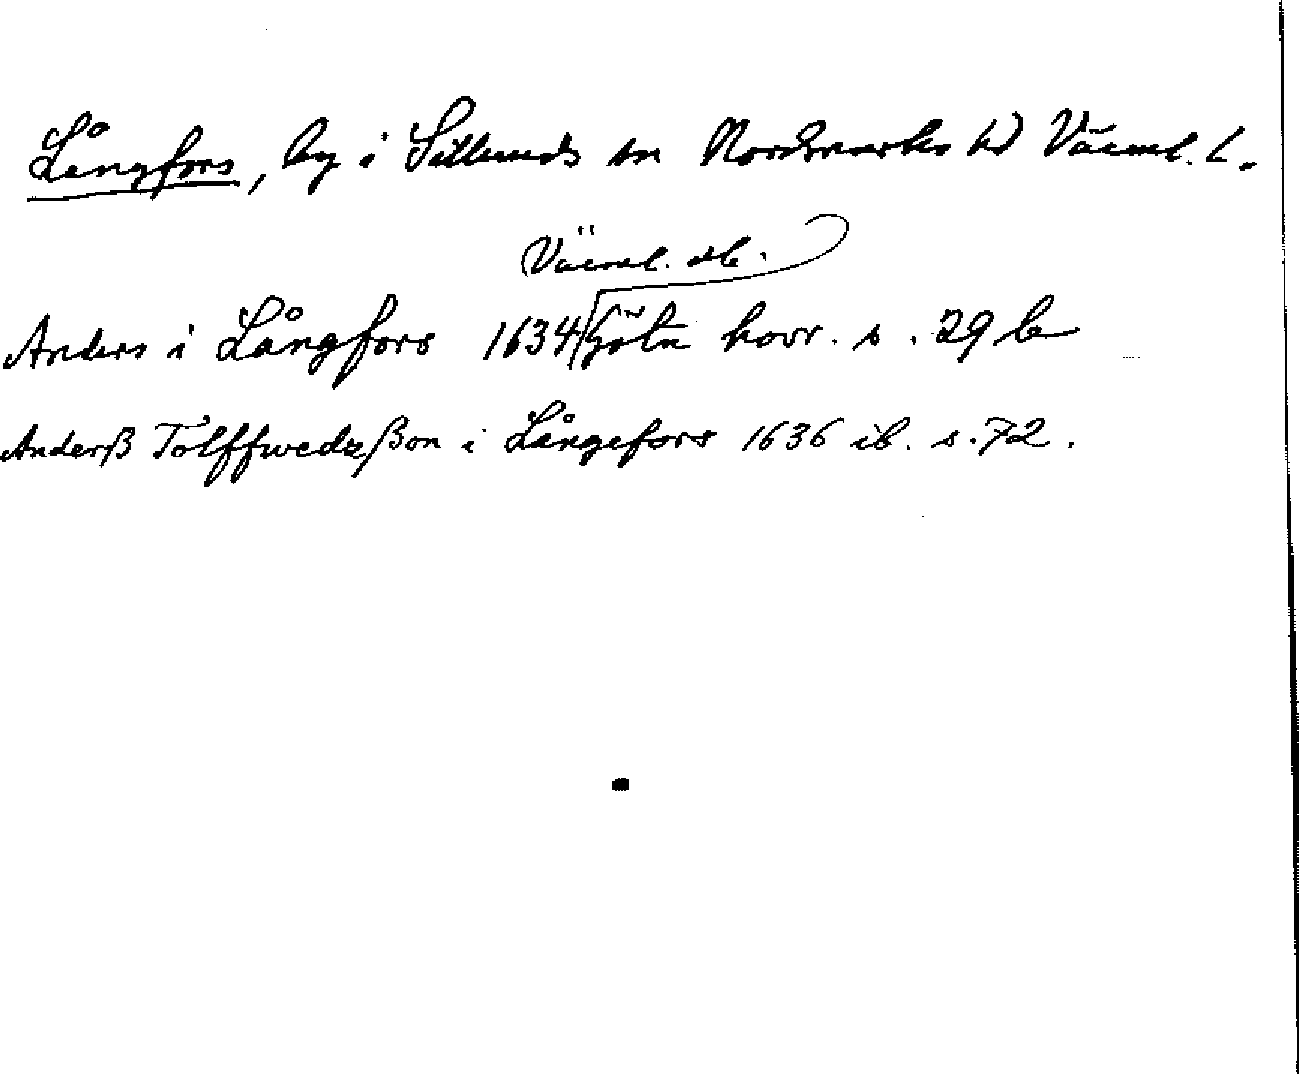 Långfors, by i Silleruds sn Nordmarks hd Värml. l.
Värml. db.
Anders i Långfors 1634 Göta hovr. s. 29 b
Anderß Tolffwedzßon i Långefors 1636 ib. s. 72.